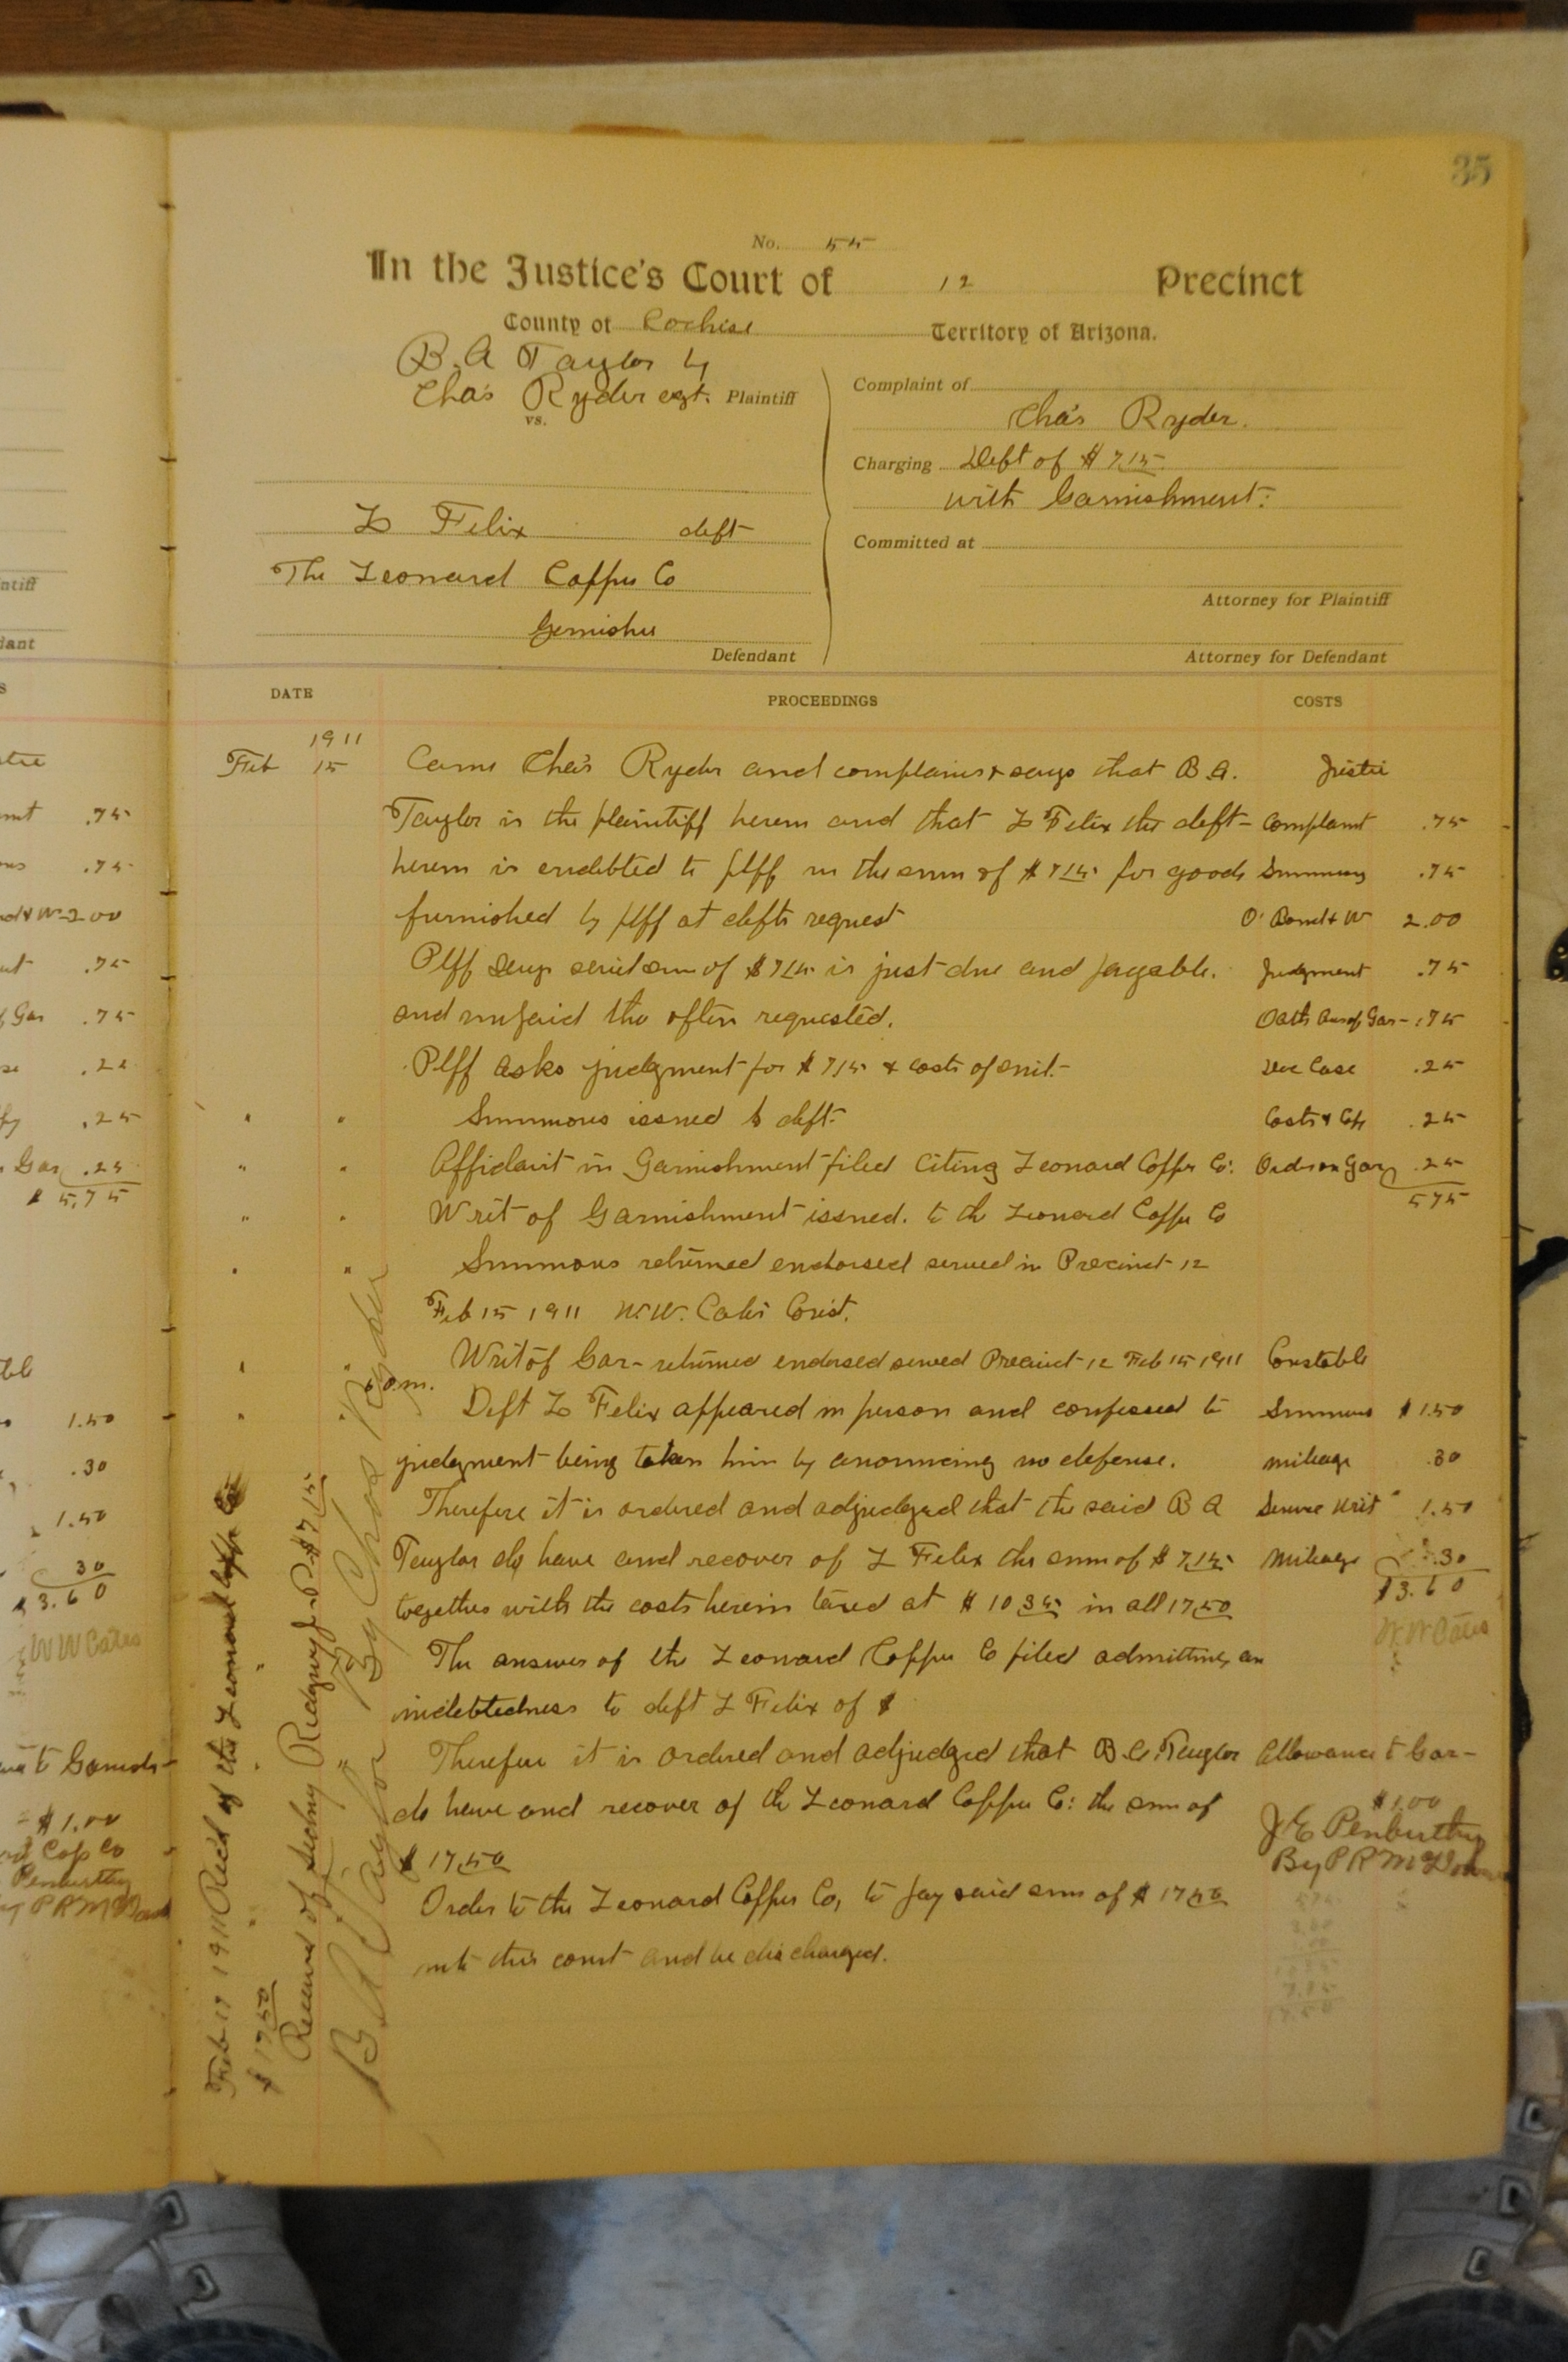 35
No. 55
In the Justice's Court of 12 Precinct
County of Cochise Territory of Arizona.
B. A Taylor by
Chas Ryder agt. Plaintiff
vs.
L Felix deft
The Leonard Copper Co
Garnishee
Defendant
Complaint of
Chas Ryder.
Charging Debt of $7.15
with Garnishment:
Committed at
Attorney for Plaintiff
Attorney for Defendant
DATE PROCEEDINGS COSTS
1911
Feb 15 Came Chas Ryder and complains & says that B.A. Justice
Taylor is the plaintiff herein and that L Felix the deft Complaint .75
herein is endebted to plff in the sum of $7.15 for goods Summons .75
furnished by plff at defts request O' Bond & W 2.00
Plff says said sum of $7.15 is just due and payable. Judgment .75
and unpaid tho often requested. Oath Ans of Gar .75
Plff asks judgment for $7.15 & costs of suit. Doc Case .25
" " Summons issued to deft. Costs & .25
" " Affidavit in Garnishment filed citing Leonard Copper Co: Order on Gar .25
5 75
" " Writ of Garnishment issued. to the Leonard Copper Co
" " Summons returned endorsed served in Precinct 12
Feb 15 1911 W.W. Cates Const.
" " Writ of Gar- returned endorsed served Precinct 12 Feb 15 1911 Constable
" " 6 P.m. Deft L Felix appeared in person and confessed to Summons $1.50
judgment being taken him by anouncing no defense. mileage .30
Therefore it is ordered and adjudged that the said B A Service Writ 1.50
Taylor do have and recover of L Felix the sum of $7.15 Mileage .30
$3.60
together with the costs herein taxed at $10 35 in all 17 50
W W Cates
The answer of the Leonard Copper Co filed admitting an
indebtedness to deft L Felix of $
Therefore it is ordered and adjudged that B A. Taylor Allowance to Gar-
do have and recover of the Leonard Copper Co: the sum of $1.00
$17.50
J E Penberthy
By P R
Order to the Leonard Copper Co, to pay said sum of $17 50
into this court and be discharged.
Feb 17 1911 Rec'd of the Leonard Copper Co
$17 50
Received of Ridgway J.P. $7.15
B A Taylor By Chas Ryder
.75
.75
2.00
.75
Gar .75
.25
Gar .25
$5.75
1.50
.30
1.50
30
$3.60
W W Cates
to Garnish-
$1.00
Cop Co
Penberthy
P R